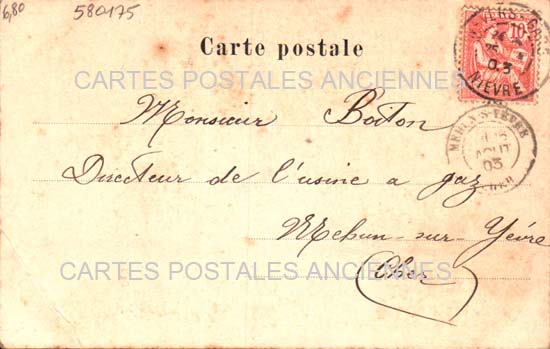 6,80
580175
Carte postale
10
NIÈVRE
03
CARTES POSTALES ANCIENNES
Monsieur Boiton
MEHUN-S-YÈVRE
AOUT
03
CHER
Directeur de l'usine a gaz
Mehun-sur-Yèvre
CARTES POSTALES ANCIENNES
Cher